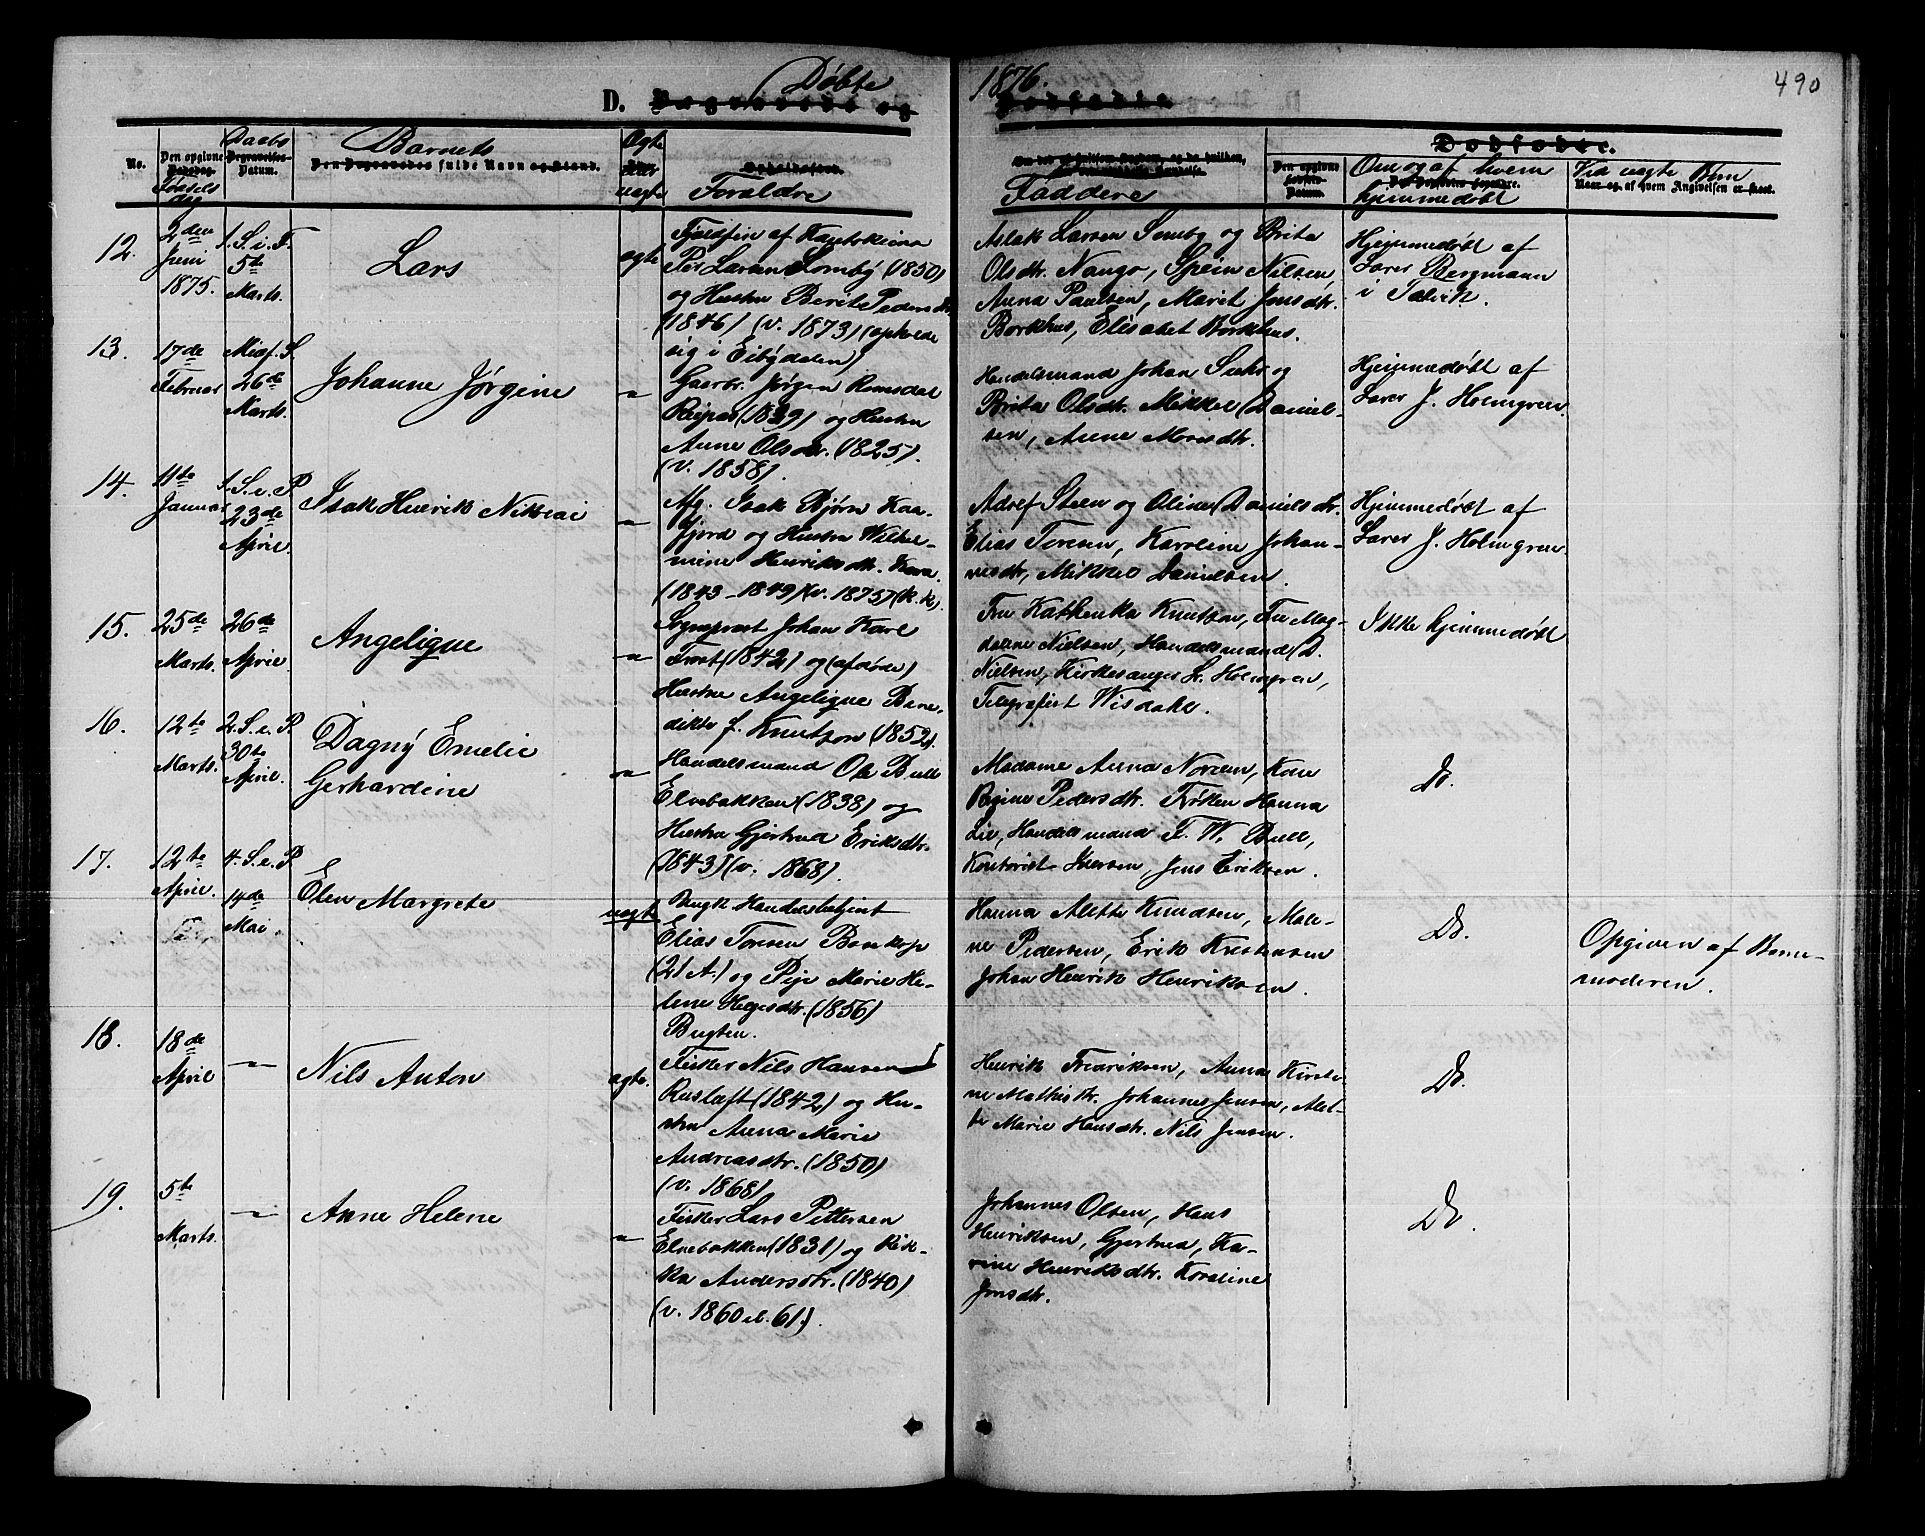 Döbte
1876.
490
D. Begravede og
Dødfødte.
Daabs
Barnets
Ægte
Dødfødte.
No.
Den opgivne
Dødsdag.
Fødsels
dag
Begravelses-
Datum.
Den Begravedes fulde Navn og Stand.
uægte
Opholdssted.
Forældre
Faddere
Den opgivne
Datum.
Om og af hvem
hjemmedøbt
Ved uægte Børn
Naar og af hvem Angivelsen er skeet.
12.
2den
Juni
1875.
1. S. i. F.
5te
Marts.
Lars
ægte
Fjeldfin af Kautokeino
Per Larsen Somby (1850)
og Hustru Berite Pedersdtr.
(1846) (v. 1873) (opholde
sig i Eibydalen)
Aslak Larsen Somby og Brita
Olsdtr. Nango, Spein Nilsen,
Anna Paulsen, Marit Jonsdtr.
Borkhus, Elisabet Borkhus.
Hjemmedøbt af
Lærer Bergmann
i Talvik.
13.
17de
Februar
Midf. S.
26de
Marts.
Johanne Jørgine
"
Gaarbr. Jørgen Romsdal
Raipas (1839) og Hustru
Anne Olsdtr. (1825).
(v. 1858)
Handelsmand Johan Suhr og
Brita Olsdtr. Mikkel Daniel-
sen, Anne Monsdtr.
Hjemmedøbt af
Lærer J. Holmgren.
14.
11te
Januar
1. S. e. P.
23de
April.
Isak Henrik Nikolai
"
Arb. Isak Bjørn Kaa-
fjord og Hustru Wilhel-
mine Henriksdtr.
(1843-1849) (v. 1875) (k. k.)
Adolf Steen og Oline Danielsdtr.
Elias Toresen, Karoline Johan-
nesdtr, Mikkel Danielsen.
Hjemmedøbt af
Lærer J. Holmgren
15.
25de
Marts.
26de
April
Angelique
"
Sogneprest Johan Karl
Trost (1842) og (afdøde)
Hustru Angelique Bene-
dikte f. Knutzon (1852).
Fru Kathenka Knutzon, Fru Mag-
dalene Nielsen, Handelsmand D.
Nielsen, Kirkesanger L. Holmgren,
Telegrafist Wisdahl.
Ikke hjemmedøbt
16.
12te
Marts.
2. S. e. P.
30te
April.
Dagny Emelie
Gerhardine
"
Handelsmand Ole Bull
Elvebakken (1838) og
Hustru Gjertrud Eriksdtr.
(1843) (v. 1868).
Madame Anna Norum, Kone
Regine Pedersdtr. Frøken Hanna
Lie, Handelsmand F. W. Bull,
Kontorist Iversen, Jens Eriksen.
Do.
17.
12te
April.
4. S. e. P.
14de
Mai
Elen Margrete
uægte
Ungk. Handelsbetjent
Elias Toresen Bosekop
(21 A.) og Pige Marie He-
lene Hegesdtr. (1856)
Bugten.
Hanna Alette Knudsen, Male-
ne Pedersen, Erik Kristensen
Johan Henrik Henriksen.
Do.
Opgiven af Barne-
moderen.
18.
18de
April
"
Nils Anton
ægte.
Fisker Nils Hansen
Rusluft (1842) og Hu-
stru Anna Marie
Andreasdtr. (1850)
(v. 1868)
Henrik Fredriksen, Anna Kirsti-
ne Mathisdtr. Johannes Jensen, Alet-
te Marie Hansdtr. Nils Jensen.
Do.
19.
5te
Marts.
"
Anne Helene
"
Fisker Lars Pettersen
Elvebakken (1831) og Rik-
ka Andersdtr. (1840)
(v. 1860 el. 61.)
Johannes Olsen, Hans
Henriksen, Gjertrud, Ka-
rine Henriksdtr. Karoline
Jonsdtr.
Do.